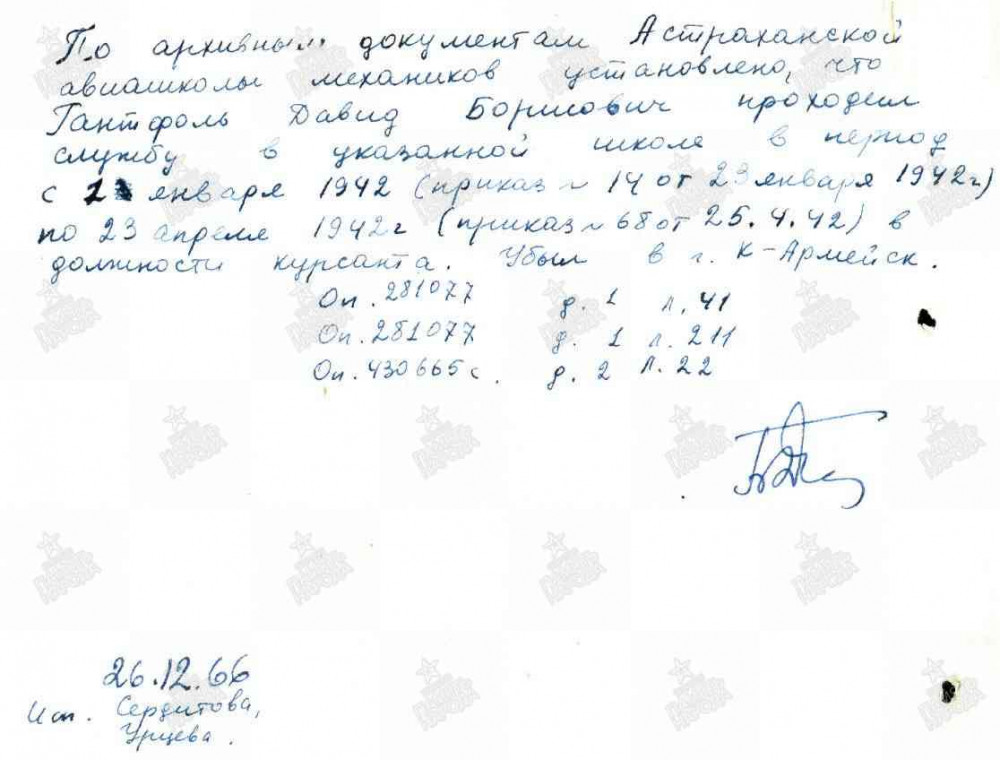 По архивным документам Астраханской
авиашколы механиков установлено, что
Гантфоль Давид Борисович проходил
службу в указанной школе в период
с января 1942 (приказ № 14 от 23 января 1942 г.)
по 23 апреля 1942 г (приказ № 68 от 25.4.42) в
должности курсанта. Убыл в г. К-Армейск.
Оп. 281077 д. 1 л. 41
Оп. 281077 д. 1 л. 211
Оп. 430665 с. д. 2 Л. 22
26.12.66
Исп. Сердитова,
Урцева.